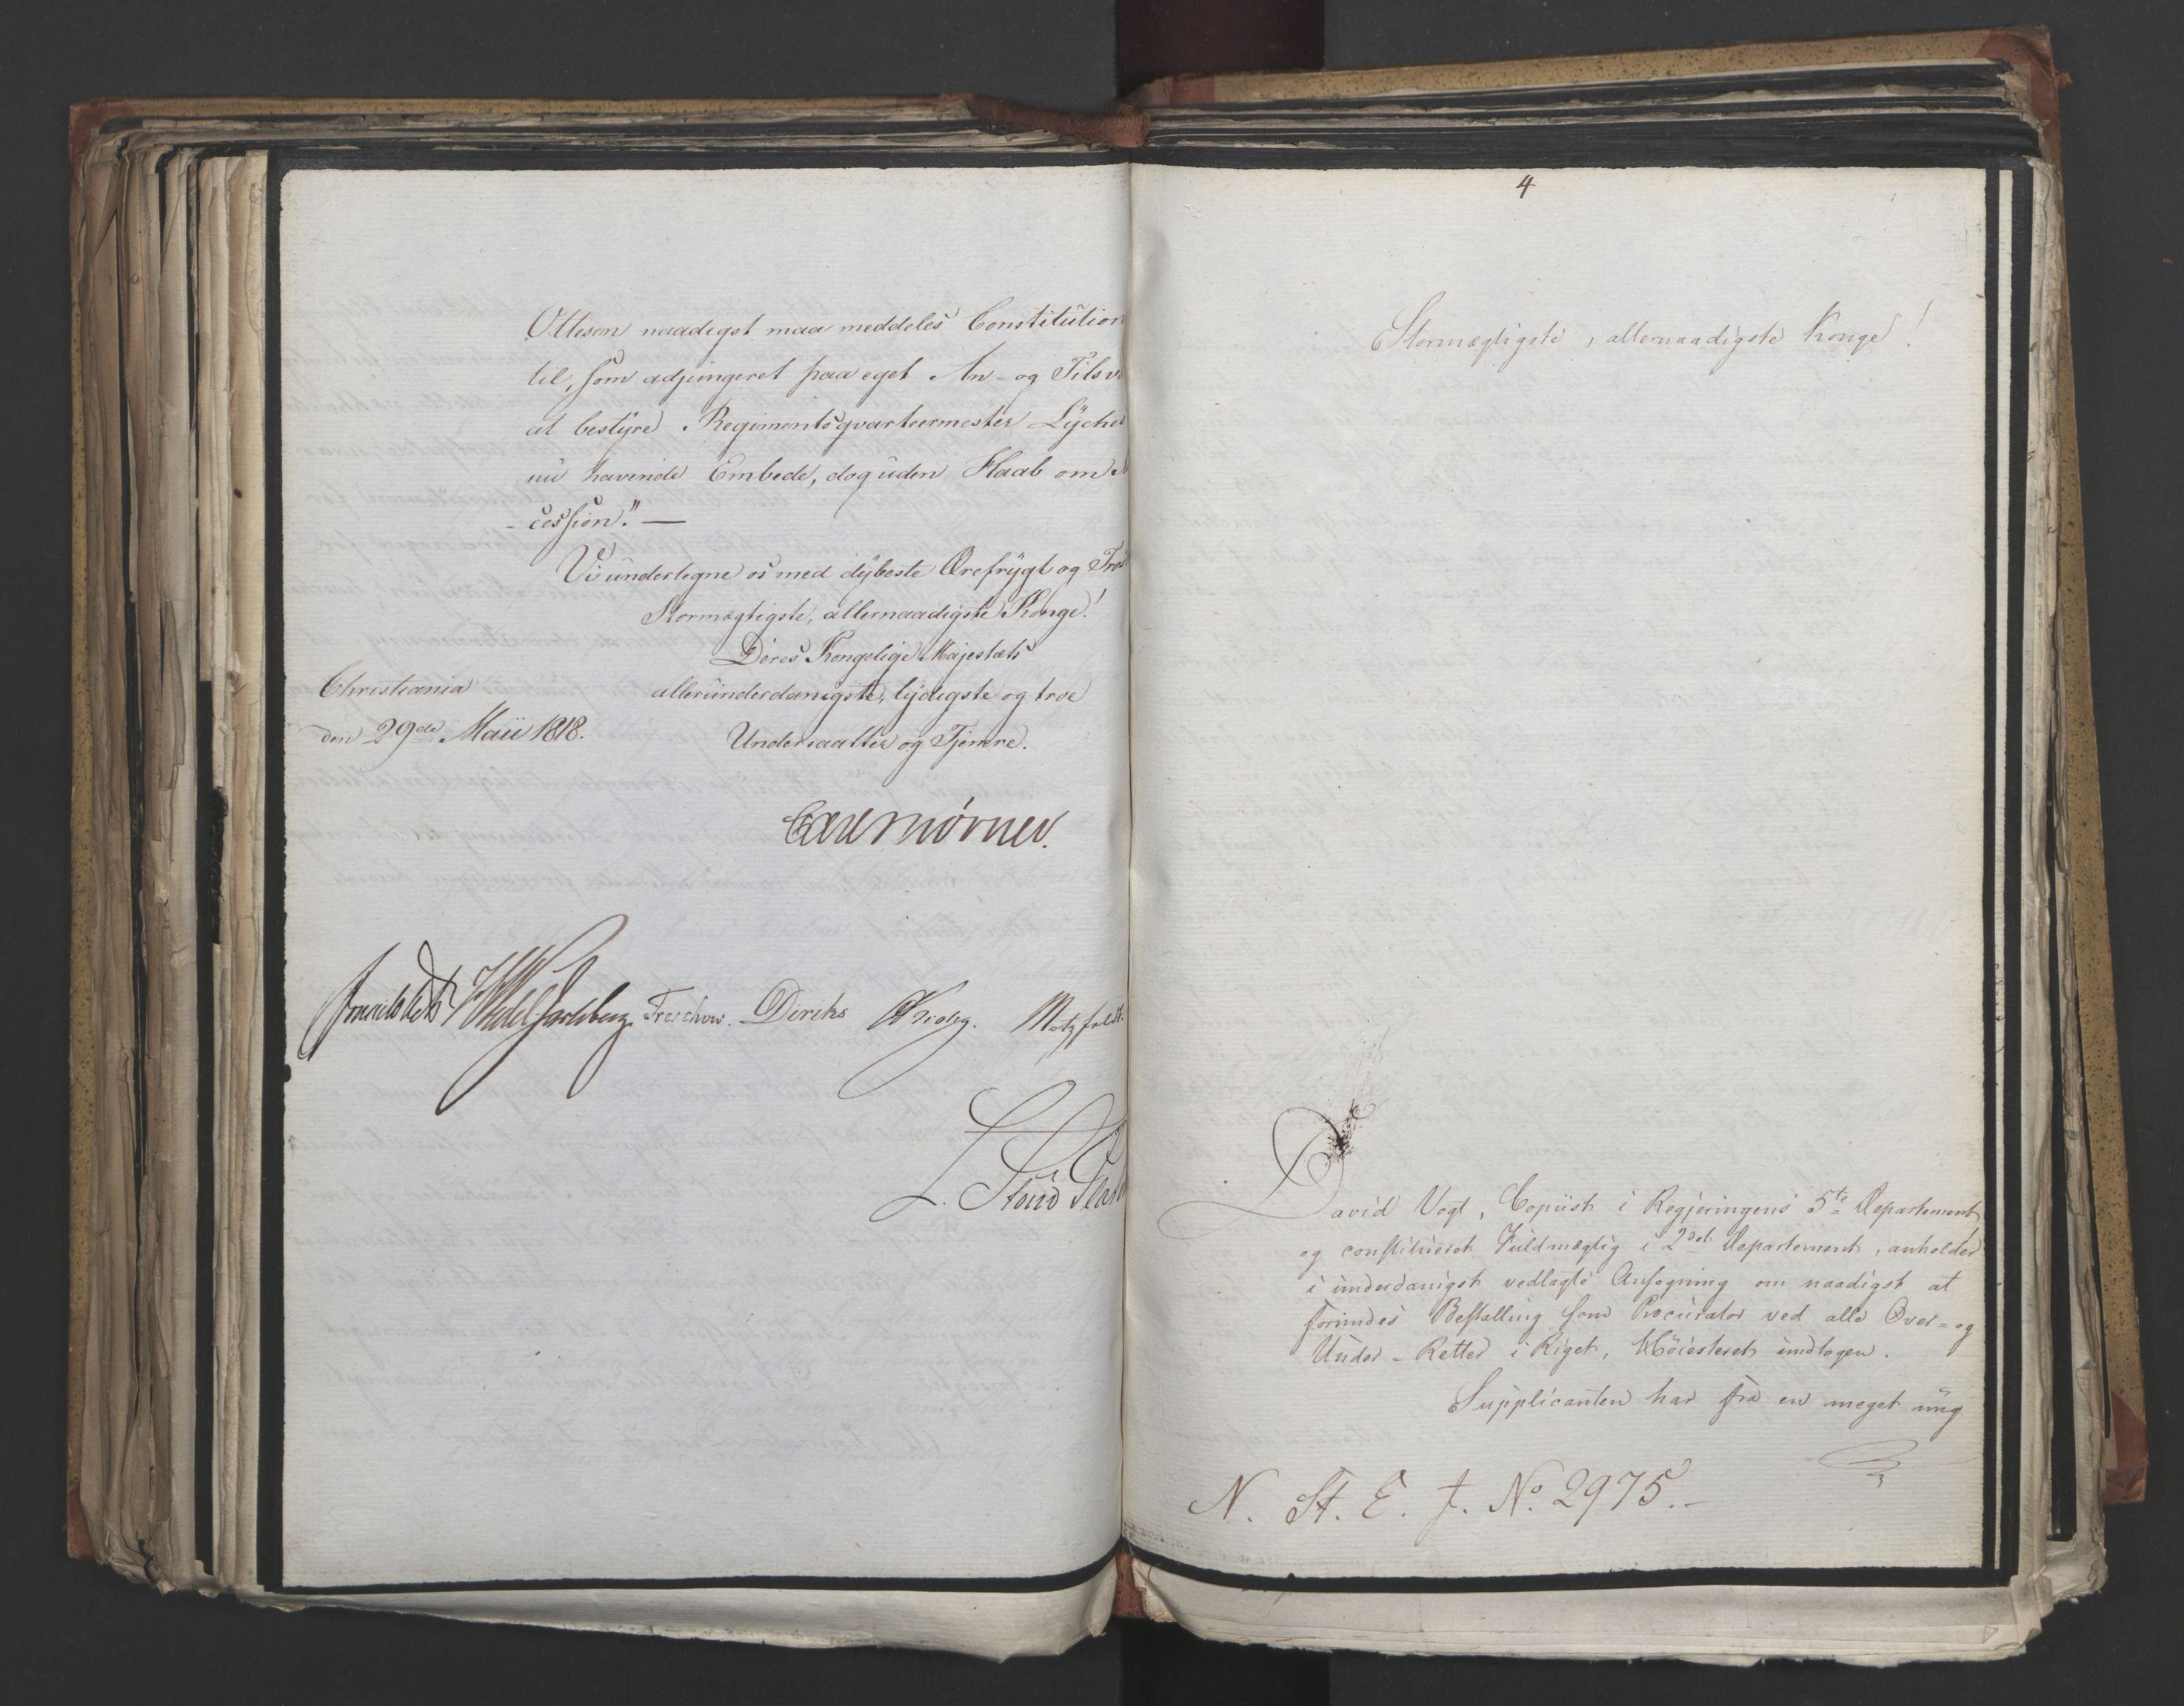 Ottesen naadigst maa meddeles Constitution
til, som adjungeret paa eget An- og Tilsva
at bestyre Regimentsqvarteermester Lyche
nu havende Embede, dog uden Haab om
-cession." —
Vi undertegne os med dybeste Ærefrygt og Tro
Stormægtigste, allernaadigste Konge!
Deres Kongelige Majestæts
Christiania allerunderdanigste, lydigste og troe
den 29de Maii 1818. Undersaatter og Tjenere.
Carl Mörner.
HWedel Jarlsberg. Treschow. Diriks Krog. Motzfeldt.
L. Stoud Plat
4
Stormægtigste, allernaadigste Konge!
David Vogt, Copiist i Regjeringens 5te Departement,
og constitueret Fuldmægtig i 2det Departement, anholder
i underdanigst vedlagte Ansøgning om naadigst at
forundes Bestalling som Procurator ved alle Over- og
Under-Retter i Riget, Høiesteret undtagen.
Supplicanten har fra en meget ung
N. St. E. J. No. 2975.-